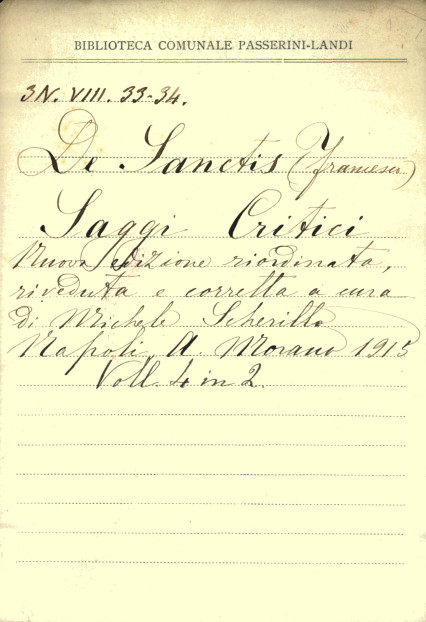 BIBLIOTECA COMUNALE PASSERINI-LANDI
3N. VIII. 33-34.
De Sanctis (Francesco)
Saggi Critici
Nuova edizione riordinata,
riveduta e corretta a cura
di Michele Scherillo
Napoli, A. Morano 1915
Voll. 4 in 2.